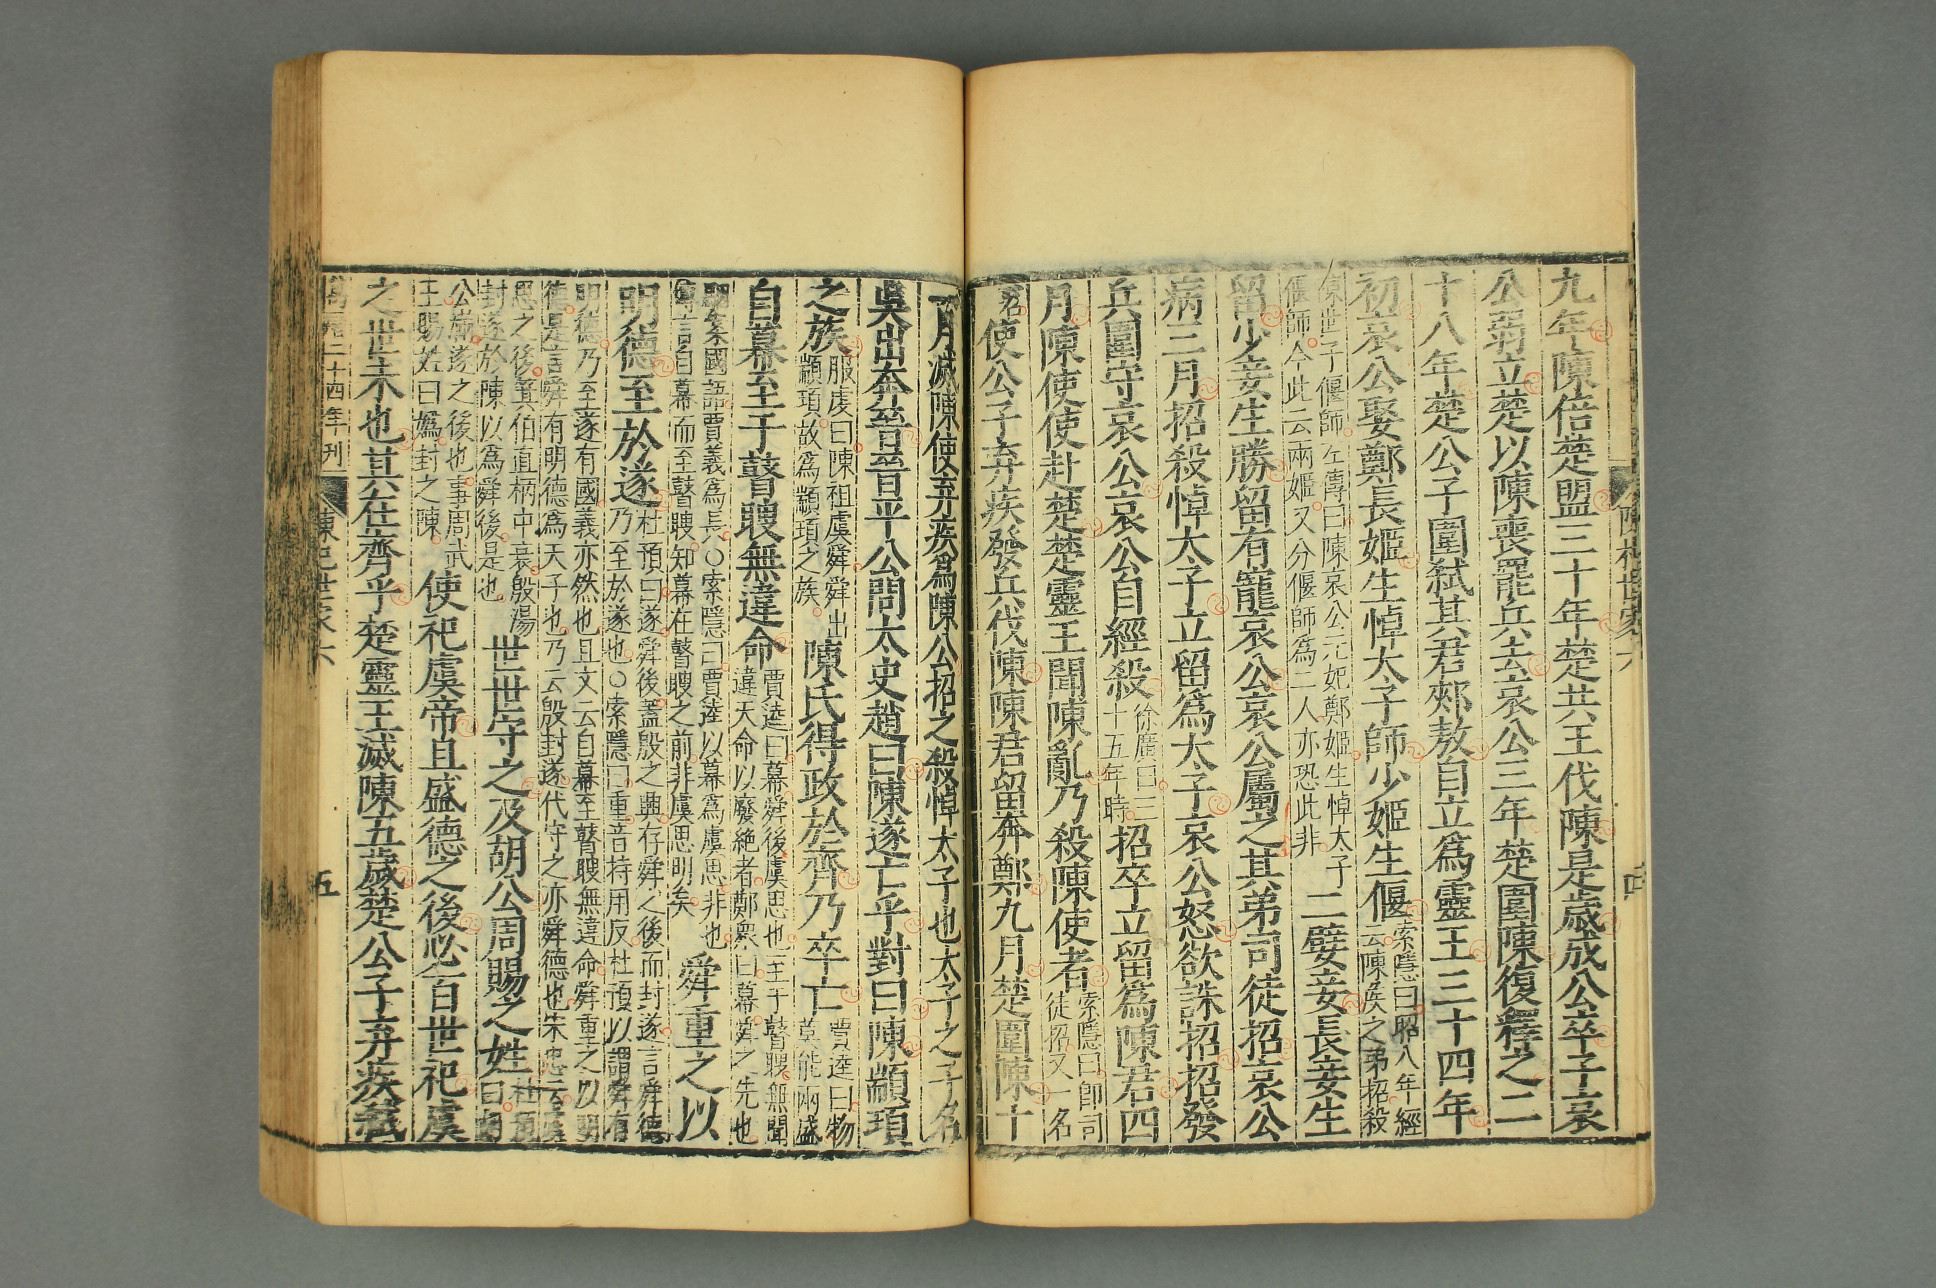 陳杞世家六
九年陳倍楚盟三十年楚共王伐陳是歲成公卒子哀
公弱立楚以陳喪罷兵去哀公三年楚圍陳復釋之二
十八年楚公子圍弑其君郟敖自立爲靈王三十四年
初哀公娶鄭長姬生悼太子師少姬生偃索隱曰昭八年經云陳侯之弟招殺
陳世子偃師左傳曰陳哀公元妃鄭姬生悼太子偃師今此云兩姬又分偃師爲二人亦恐此非二嬖妾長妾生
留少妾生勝留有寵哀公哀公屬之其弟司徒招哀公
病三月招殺悼太子立留爲太子哀公怒欲誅招招發
兵圍守哀公哀公自經殺徐廣曰三十五年時招卒立留爲陳君四
月陳使使赴楚楚靈王聞陳亂乃殺陳使者索隱曰即司徒招又一名
苕使公子弃疾發兵伐陳陳君留奔鄭九月楚圍陳十
一月滅陳使弃疾爲陳公招之殺悼太子也太子之子名
吳出奔晉晉平公問太史趙曰陳遂亡乎對曰陳顓頊
之族服虔曰陳祖虞舜舜出顓頊故爲顓頊之族陳氏得政於齊乃卒亡賈逵曰物莫能兩盛
自幕至于瞽瞍無違命賈逵曰幕舜後虞思也至于瞽瞍無聞違天命以廢絕者鄭衆曰幕舜之先也
駰案國語賈義爲長○索隱曰賈逵以幕爲虞思非也傳言自幕而至瞽瞍知幕在瞽瞍之前非虞思明矣舜重之以
明德至於遂杜預曰遂舜後蓋殷之興存舜之後而封遂言舜德乃至於遂也○索隱曰重音持用反杜預以謂舜有
明德乃至遂有國義亦然也且文云自幕至瞽瞍無違命舜重之以明德是言舜有明德爲天子也乃云殷封遂代守之亦舜德也宋忠云虞
思之後箕伯直柄中衰殷湯封遂於陳以爲舜後是也世世守之及胡公周賜之姓杜預曰胡
公滿遂之後也事周武王賜姓曰嬀封之陳使祀虞帝且盛德之後必百世祀虞
之世未也其在齊乎楚靈王滅陳五歲楚公子弃疾弑
萬曆二十四年刊 陳杞世家六 五